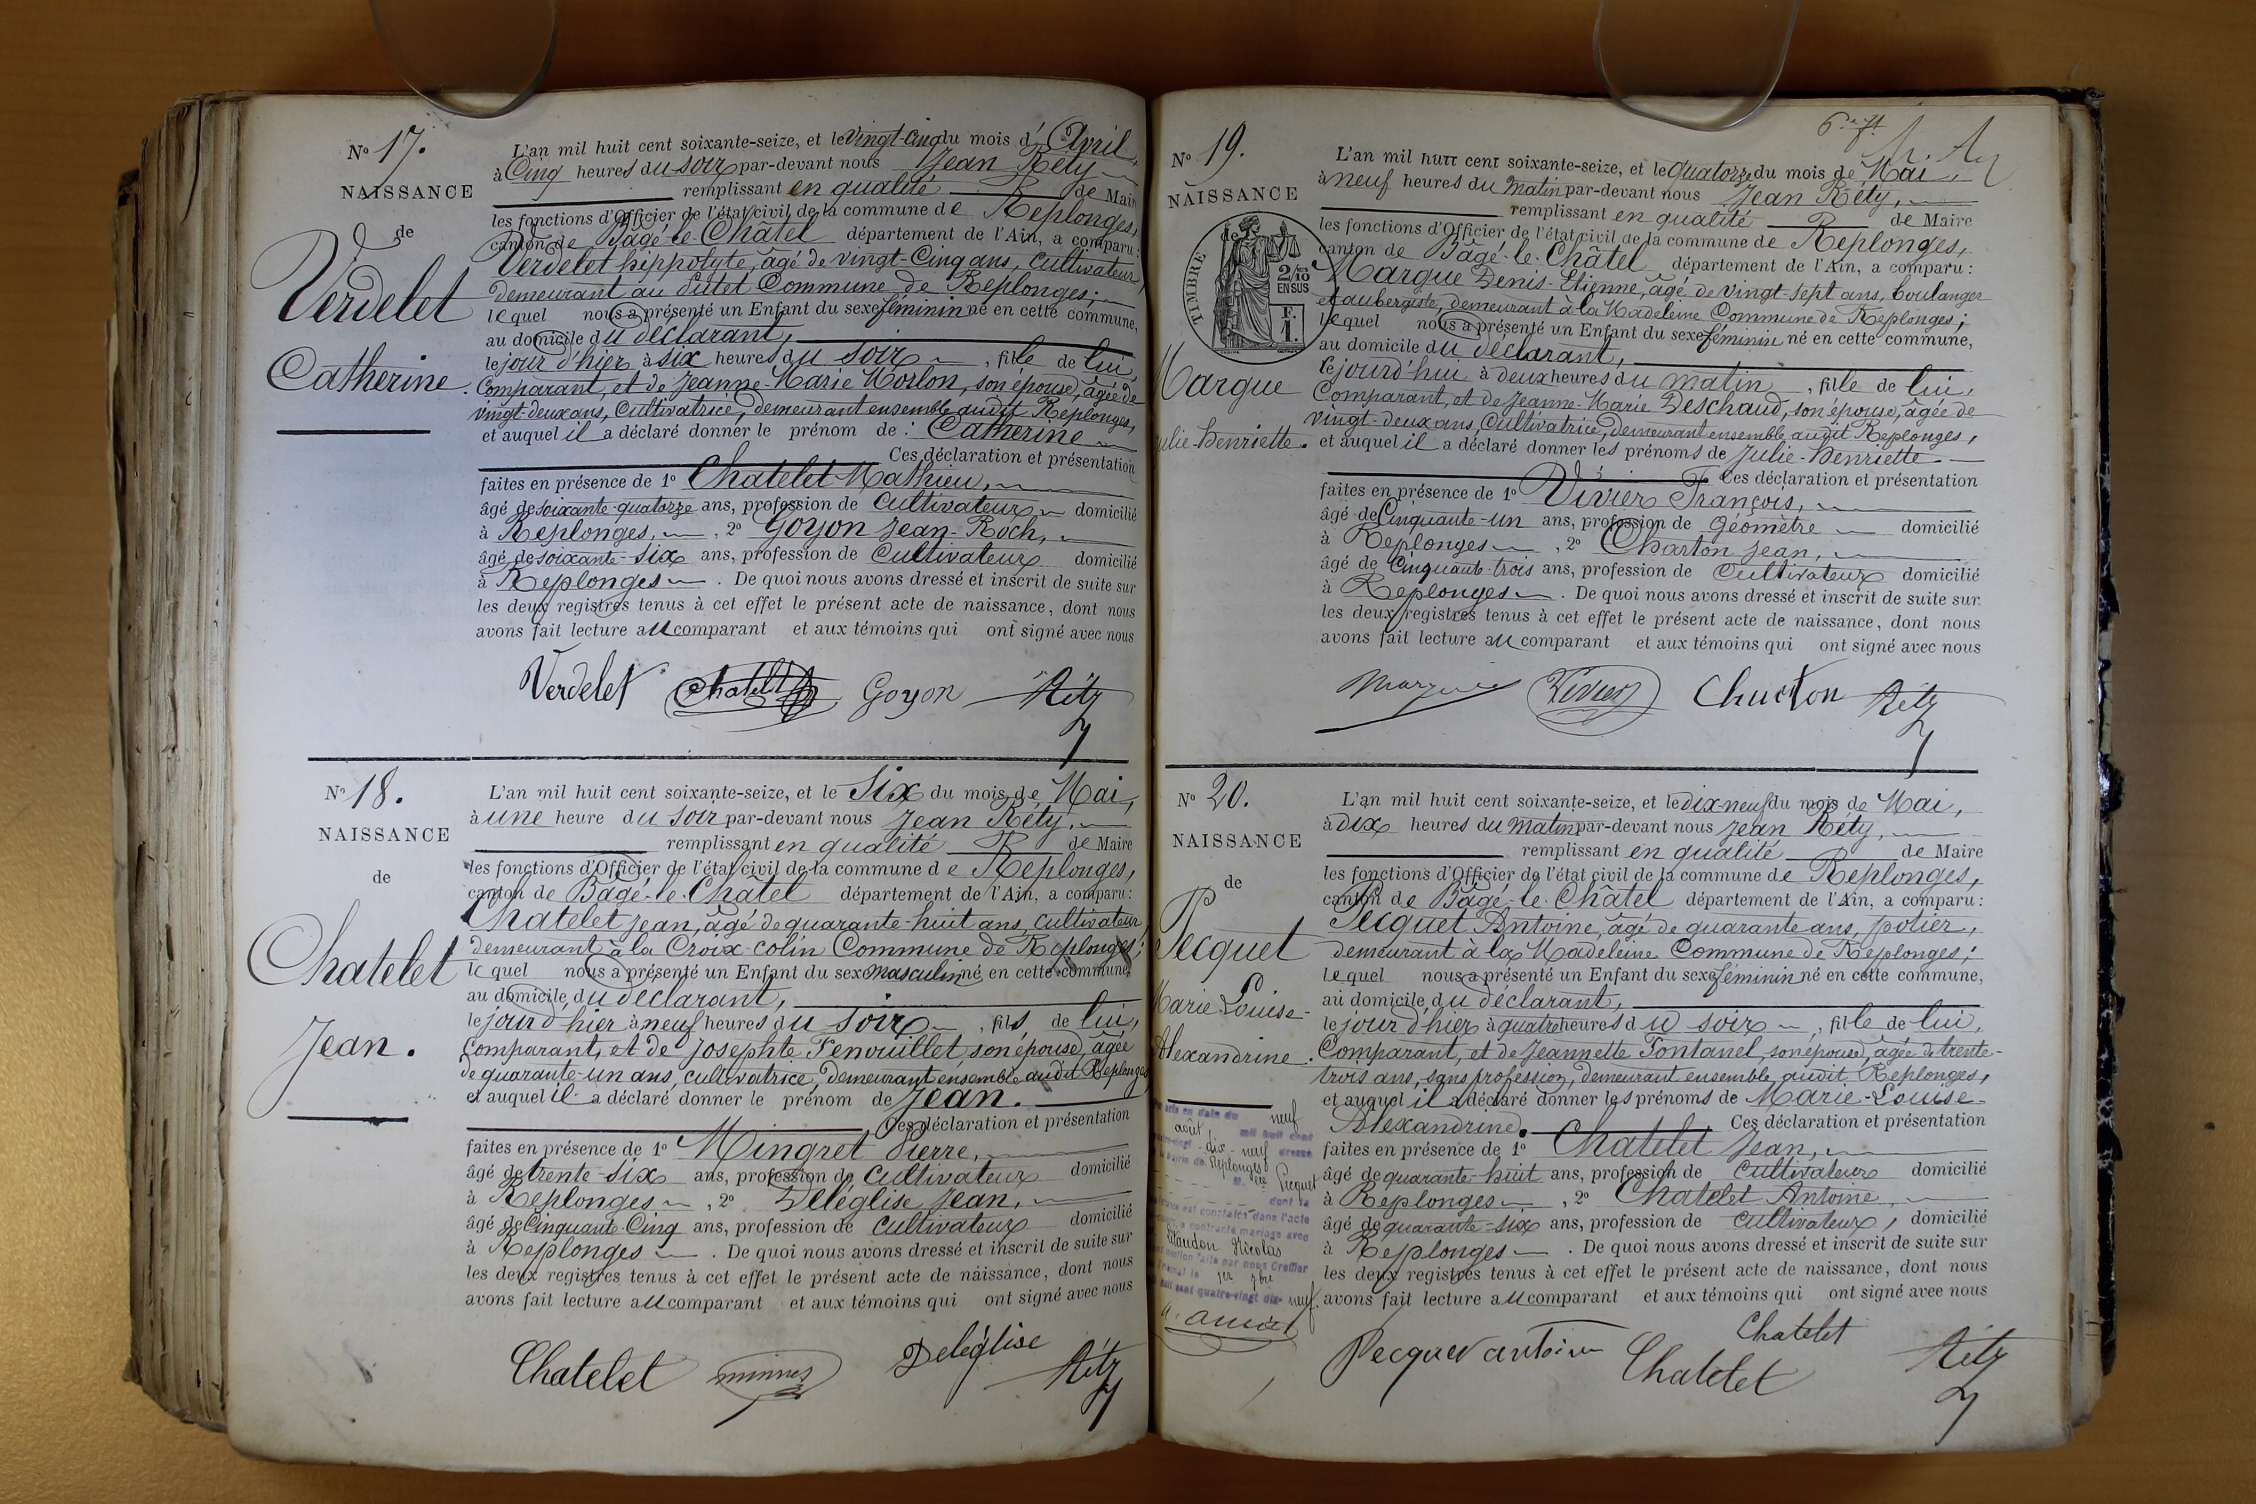 N° 17.
NAISSANCE
de
Verdelet
Catherine.
L'an mil huit cent soixante-seize, et le vingt-cinq du mois d'Avril,
à Cinq heures du soir par-devant nous Jean Réty
remplissant en qualité de Maire
les fonctions d'Officier de l'état civil de la commune de Replonges,
canton de Bâgé-le-Châtel département de l'Ain, a comparu:
Verdelet hippolyte, âgé de vingt-Cinq ans, cultivateur
demeurant au Commune de Replonges;
lequel nous a présenté un Enfant du sexe féminin né en cette commune,
au domicile du déclarant,
le jour d'hier à six heures du soir, fille de lui
Comparant, et de Jeanne-Marie Morlon, son épouse, âgée de
vingt-deux ans, Cultivatrice, demeurant ensemble audit Replonges,
et auquel il a déclaré donner le prénom de: Catherine
Ces déclaration et présentation
faites en présence de 1° Chatelet Mathieu,
âgé de soixante-quatorze ans, profession de Cultivateur domicilié
à Replonges, , 2° Goyon Jean-Roch,
âgé de soixante-six ans, profession de Cultivateur domicilié
à Replonges. De quoi nous avons dressé et inscrit de suite sur
les deux registres tenus à cet effet le présent acte de naissance, dont nous
avons fait lecture au comparant et aux témoins qui ont signé avec nous
Verdelet Chatelet Goyon Réty
N° 18.
NAISSANCE
de
Chatelet
Jean.
L'an mil huit cent soixante-seize, et le Six du mois de Mai,
à une heure du soir par-devant nous Jean Réty,
remplissant en qualité de Maire
les fonctions d'Officier de l'état civil de la commune de Replonges,
canton de Bâgé-le-Châtel département de l'Ain, a comparu:
Chatelet Jean, âgé de quarante-huit ans, cultivateur
demeurant à la Croix-colin Commune de Replonges;
lequel nous a présenté un Enfant du sexe masculin né en cette commune,
au domicile du déclarant,
le jour d'hier à neuf heures du soir, fils de lui,
Comparant, et de Josephte Fenouillet, son épouse, âgée
de quarante-un ans, cultivatrice, demeurant ensemble audit Replonges
et auquel il a déclaré donner le prénom de Jean.
Ces déclaration et présentation
faites en présence de 1° Mingret Pierre,
âgé de trente-six ans, profession de cultivateur domicilié
à Replonges, 2° Deléglise Jean,
âgé de Cinquante Cinq ans, profession de cultivateur domicilié
à Replonges. De quoi nous avons dressé et inscrit de suite sur
les deux registres tenus à cet effet le présent acte de naissance, dont nous
avons fait lecture au comparant et aux témoins qui ont signé avec nous
Chatelet Deléglise Réty
N° 19.
NAISSANCE
de
TIMBRE
2/10 EN SUS
F. 1.
Margue
Julie-henriette.
L'an mil huit cent soixante-seize, et le quatorze du mois de Mai,
à neuf heures du Matin par-devant nous Jean Réty,
remplissant en qualité de Maire
les fonctions d'Officier de l'état civil de la commune de Replonges,
canton de Bâgé-le-Châtel département de l'Ain, a comparu:
Margue Denis-Etienne, âgé de vingt-sept ans, boulanger
et aubergiste, demeurant à la Madeleine Commune de Replonges;
lequel nous a présenté un Enfant du sexe féminin né en cette commune,
au domicile du déclarant,
le jourd'hui à deux heures du matin, fille de lui,
Comparant, et de Jeanne-Marie Deschaud, son épouse, âgée de
vingt-deux ans, Cultivatrice, demeurant ensemble audit Replonges,
et auquel il a déclaré donner les prénoms de Julie-henriette
Ces déclaration et présentation
faites en présence de 1° Vivier François,
âgé de Cinquante-un ans, profession de géomètre domicilié
à Replonges, 2° Charton Jean,
âgé de Cinquante-trois ans, profession de Cultivateur domicilié
à Replonges. De quoi nous avons dressé et inscrit de suite sur
les deux registres tenus à cet effet le présent acte de naissance, dont nous
avons fait lecture au comparant et aux témoins qui ont signé avec nous
Margue Vivier Charton Réty
N° 20.
NAISSANCE
de
Pecquet
Marie-Louise-
Alexandrine.
neuf
août mil huit cent
dix-neuf dressé
Replonges
Pecquet
dont la
est constatée dans l'acte
a contracté mariage avec
Nicolas
mention faite par nous Greffier
cent quatre-vingt dix-neuf.
L'an mil huit cent soixante-seize, et le dix-neuf du mois de Mai,
à dix heures du Matin par-devant nous Jean Réty,
remplissant en qualité de Maire
les fonctions d'Officier de l'état civil de la commune de Replonges,
canton de Bâgé-le-Châtel département de l'Ain, a comparu:
Pecquet Antoine, âgé de quarante ans, potier,
demeurant à la Madeleine Commune de Replonges;
lequel nous a présenté un Enfant du sexe féminin né en cette commune,
au domicile du déclarant,
le jour d'hier à quatre heures du soir, fille de lui,
Comparant, et de Jeannette Fontanel, son épouse, âgée de trente-
trois ans, sans profession, demeurant ensemble audit Replonges,
et auquel il a déclaré donner les prénoms de Marie-Louise-
Alexandrine. Ces déclaration et présentation
faites en présence de 1° Chatelet Jean,
âgé de quarante-huit ans, profession de cultivateur domicilié
à Replonges, 2° Chatelet Antoine,
âgé de quarante-six ans, profession de cultivateur, domicilié
à Replonges. De quoi nous avons dressé et inscrit de suite sur
les deux registres tenus à cet effet le présent acte de naissance, dont nous
avons fait lecture au comparant et aux témoins qui ont signé avec nous
Pecquet antoine Chatelet Chatelet Réty